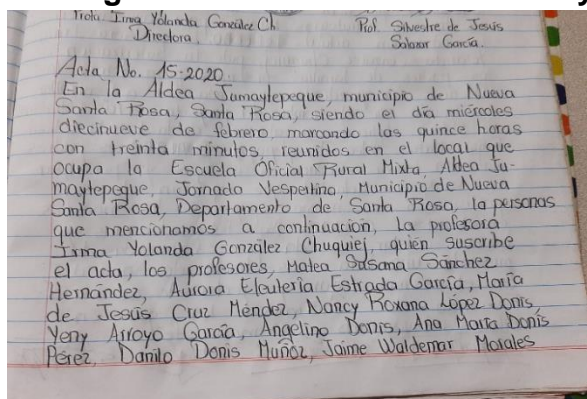 Profa. Irma Yolanda González Ch.
Directora.
Prof. Silvestre de Jesús
Salazar García.
Acta No. 15-2020
En la Aldea Jumaytepeque, municipio de Nueva
Santa Rosa, Santa Rosa, siendo el día miércoles
diecinueve de febrero, marcando las quince horas
con treinta minutos, reunidos en el local que
ocupa la Escuela Oficial Rural Mixta, Aldea Ju-
maytepeque, Jornada Vespertina, Municipio de Nueva
Santa Rosa, Departamento de Santa Rosa, la personas
que mencionamos a continuación, La profesora
Irma Yolanda González Chuquiej, quién suscribe
el acta, los profesores, Matea Susana Sánchez
Hernández, Aurora Eleuteria Estrada García, María
de Jesús Cruz Méndez, Nancy Roxana López Donis,
Yeny Arroyo García, Angelino Donis, Ana María Donis
Pérez, Danilo Donis Muñoz, Jaime Waldemar Morales